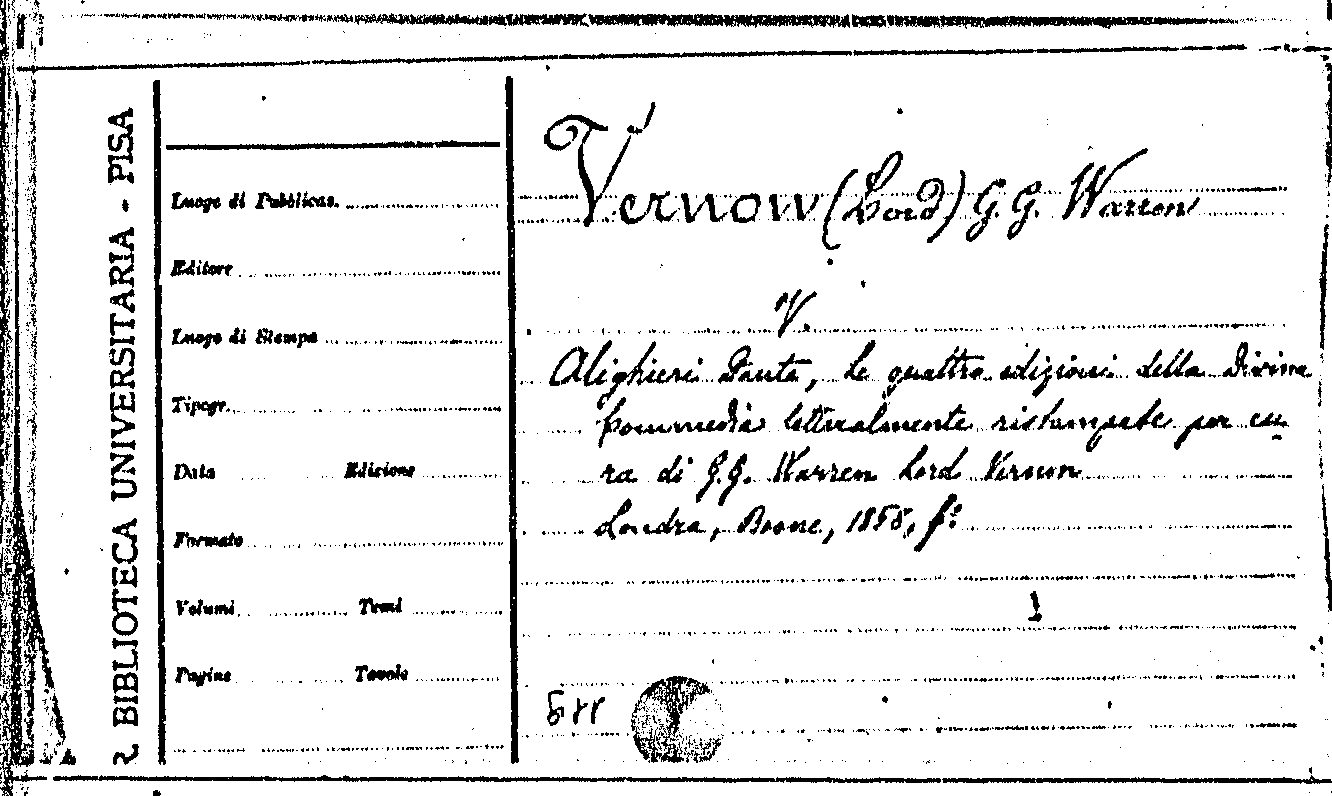 R BIBLIOTECA UNIVERSITARIA - PISA
Luogo di Pubblicaz.
Editore
Luogo di Stampa
Tipogr.
Data Edizione
Formato
Volumi Tomi
Pagine Tavole
Vernon (Lord) G. G. Warren
V.
Alighieri Dante, Le quattro edizioni della Divina
Commedia letteralmente ristampate per cu-
ra di G. G. Warren Lord Vernon
Londra, Boone, 1858, f.º